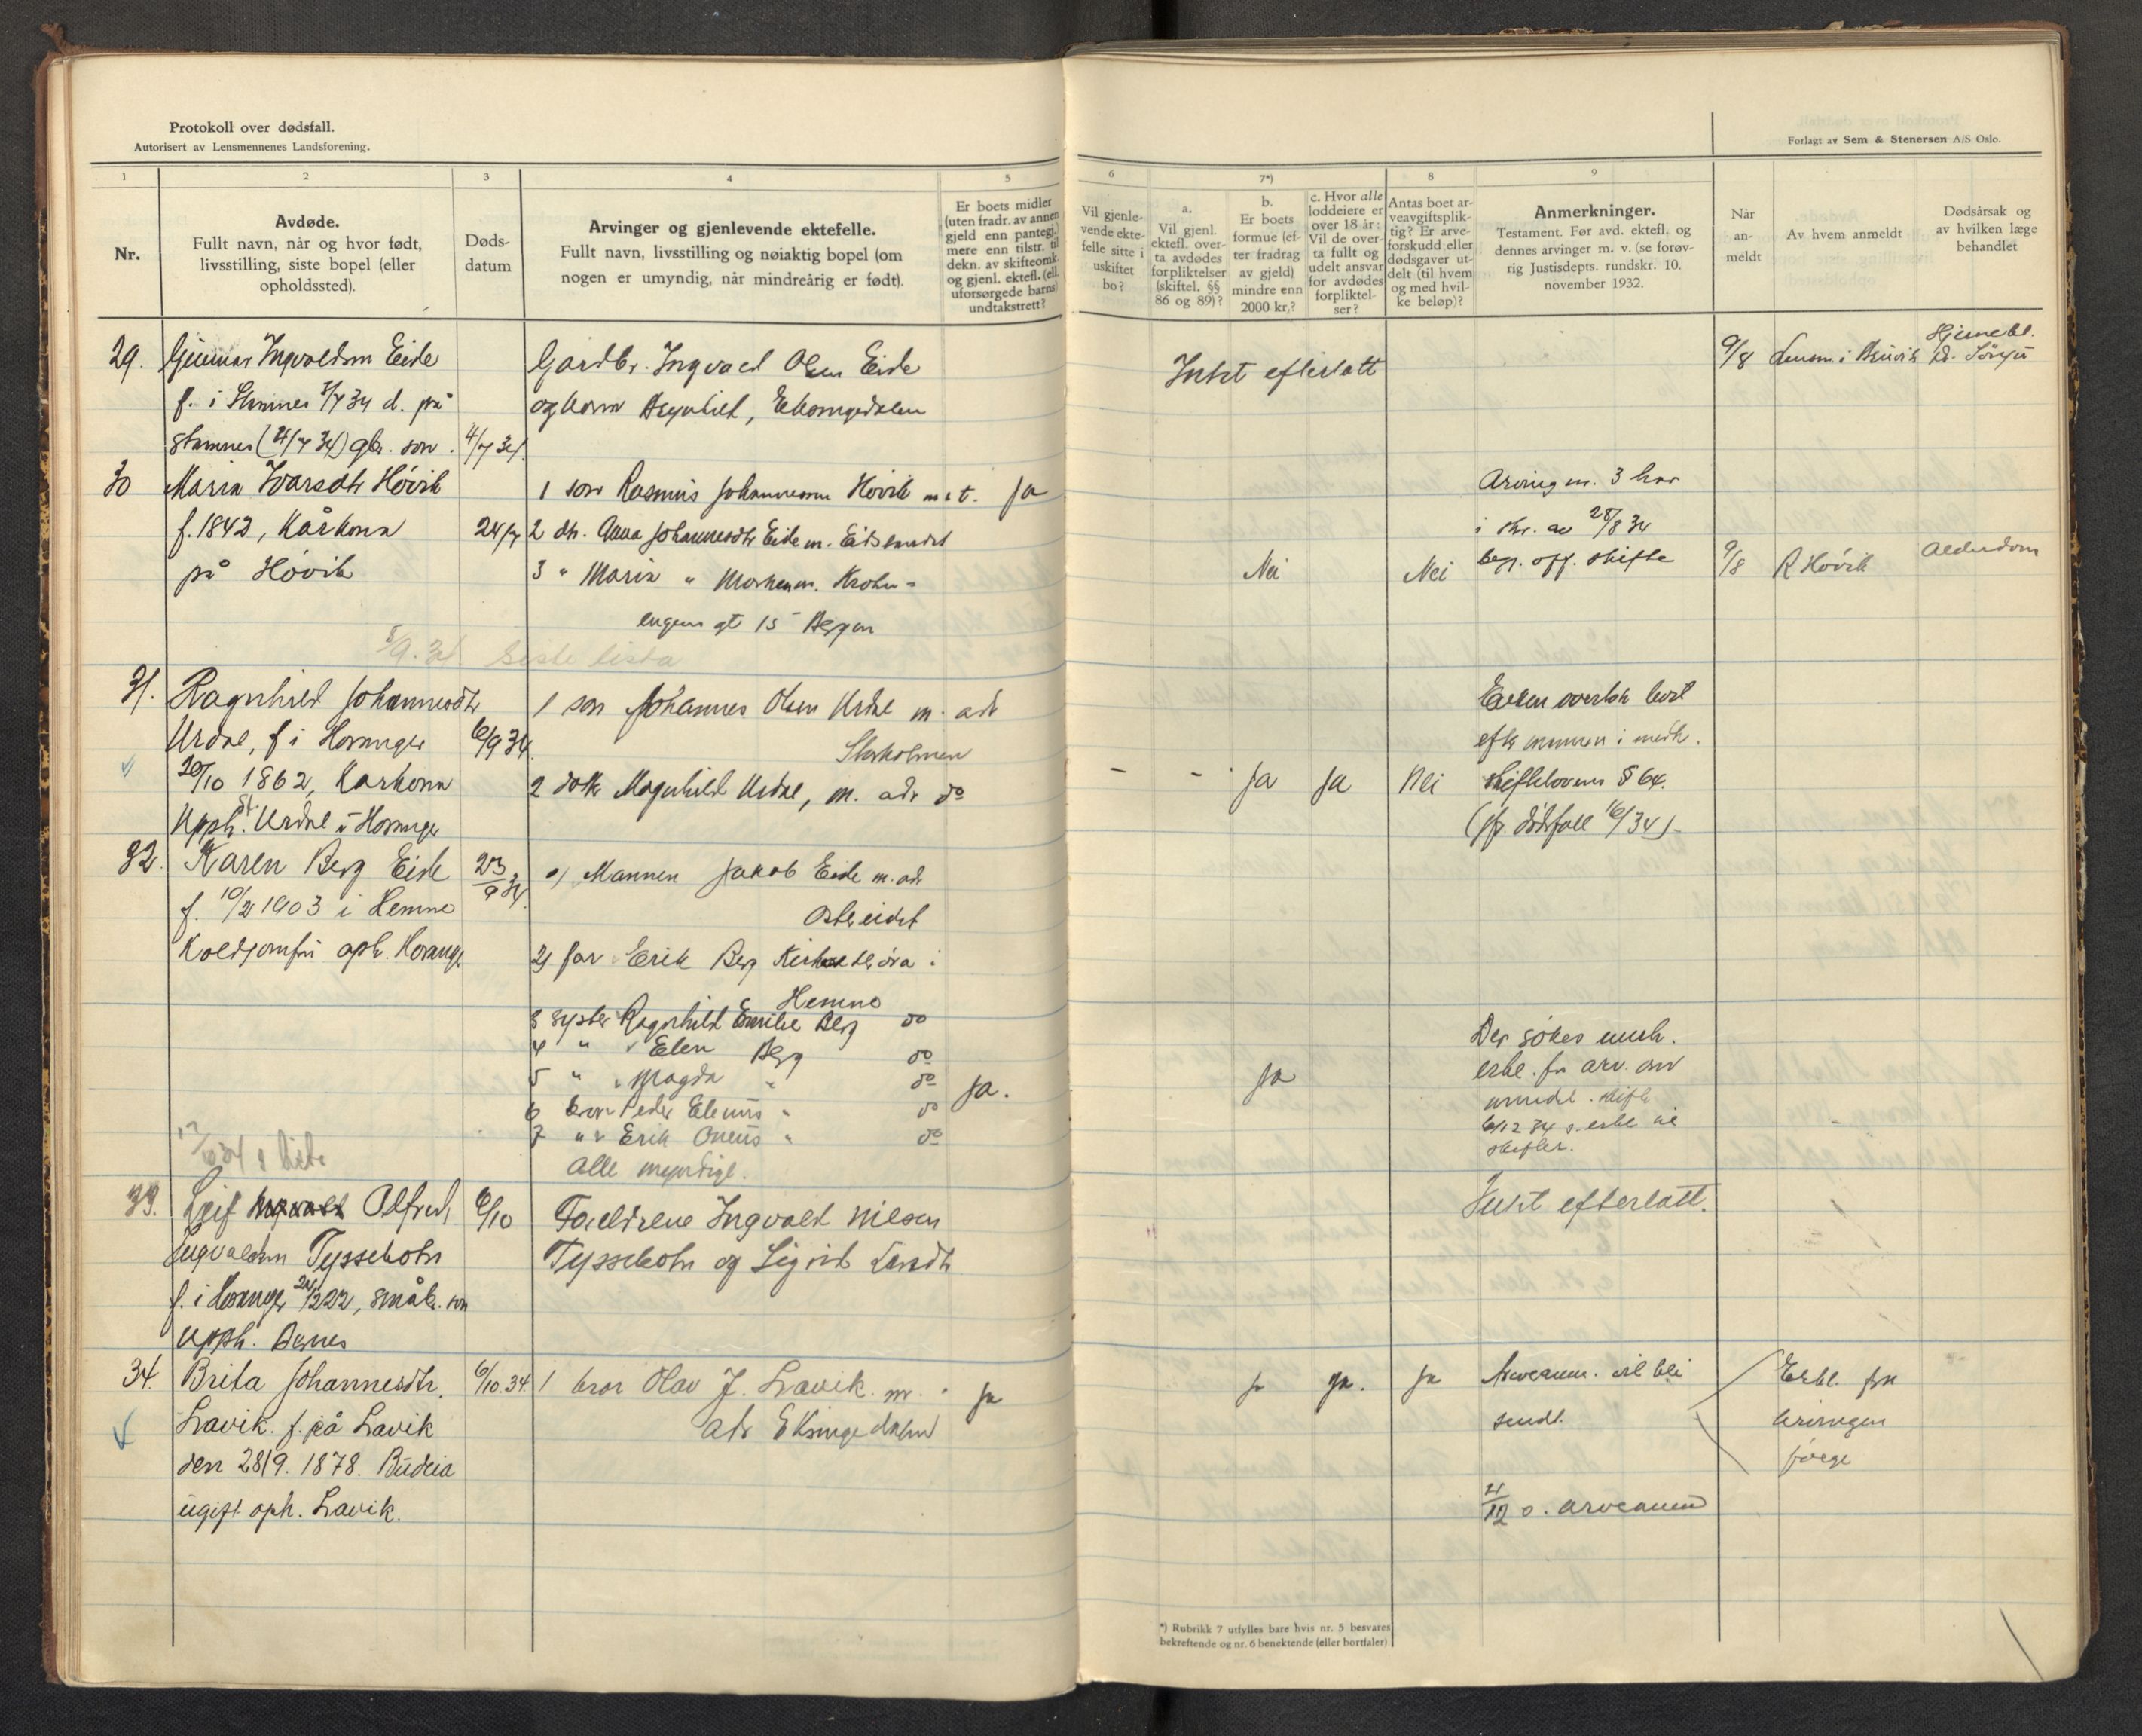 Protokoll over dødsfall.
Autorisert av Lensmennenes Landsforening.
Forlagt av Sem & Stenersen A/S Oslo.
1
2
3
4
5
6
7*)
8
9
Nr.
Avdøde.
Fullt navn, når og hvor født,
livsstilling, siste bopel (eller
opholdssted).
Døds-
datum
Arvinger og gjenlevende ektefelle.
Fullt navn, livsstilling og nøiaktig bopel (om
nogen er umyndig, når mindreårig er født).
Er boets midler
(uten fradr. av annen
gjeld enn pantegj.)
mere enn tilstr. til
dekn. av skifteomk.
og gjenl. ektefl. (ell.
uforsørgede barns)
undtakstrett?
Vil gjenle-
vende ekte-
felle sitte i
uskiftet
bo?
a.
Vil gjenl.
ektefl. over-
ta avdødes
forpliktelser
(skiftel. §§
86 og 89)?
b.
Er boets
formue (ef-
ter fradrag
av gjeld)
mindre enn
2000 kr.?
c. Hvor alle
loddeiere er
over 18 år:
Vil de over-
ta fullt og
udelt ansvar
for avdødes
forpliktel-
ser?
Antas boet ar-
veavgiftsplik-
tig? Er arve-
forskudd eller
dødsgaver ut-
delt (til hvem
og med hvil-
ke beløp)?
Anmerkninger.
Testament. Før avd. ektefl. og
dennes arvinger m. v. (se forøv-
rig Justisdepts. rundskr. 10.
november 1932.
Når
an-
meldt
Av hvem anmeldt
Dødsårsak og
av hvilken læge
behandlet
29. Gunnar Ingvaldson Eide
f. i Stamnes 3/7 34 d. på
Stamnes (4/7 34) gbr. son.
4/7 34.
Gardbr. Ingvald Olsen Eide
og kona Borghild, Eksingedalen
Intet efterlatt
9/8 Lensm. i Bruvik
30 Maria Ivarsdtr Høvik
f. 1842, Kårkona
på Høvik
24/7
1 son Rasmus Johannesson Høvik m. t. Ja
2 dtr. Anna Johannesdtr Eide m. Eidslandet
3 " Maria " m. Krohn-
engen gt 15 Bergen
Nei
Nei
Arving nr. 3 har
i skr. av 28/8 34
beg. off. skifte
9/8 R Høvik
Alderdom
5/9. 34 Siste lista
31. Ragnhild Johannesdtr
Urdal, f i Hosanger
20/10 1862, Karkona
Upph. Urdal i Hosanger
6/9 34.
1 son Johannes Olsen Urdal m. adr
Storholmen
2 dotr Magnhild Urdal, m. adr do
- - Ja Ja Nei
Enken overtok boet
efter mannen i medh.
skiftelovens § 64.
(jfr. dødsfall 16/34).
32. Karen Berg Eide
f. 10/2 1903 i Hemne
oph. Hosanger
23/9 34.
1) Mannen Jakob Eide m. adr
Ostereidet
2) far Erik Berg Kirksetøra i
Hemne
3 syster Ragnhild Emilie Berg do
4 " Elen Berg do
5 " Magda " do
6 bror Peder Elenius " do
7 " Erik " do
Alle myndige.
Ja.
Ja
Der søkes
erkl. fra arv. om
skifte
6/12 34 s. erkl.
skifter.
33. Leif Alfred
Ingvaldsen Tyssebotn
f. i Hosanger 24/2 22, småbr. son
Upph. Bernes
6/10
Foreldrene Ingvald Nilsen
Tyssebotn og Sigrid
Intet efterlatt.
34. Brita Johannesdtr.
Lavik. f. på Lavik
den 28/9. 1878. Budeia
ugift oph. Lavik.
6/10. 34.
1 bror Olav J. Lavik. m.
adr Eksingedalen
Ja
Ja Ja. Ja
Arveanm. vil bli
sendt.
21/12 s. arveanm
Erkl. fra
arvingen
følge
*) Rubrikk 7 utfylles bare hvis nr. 5 besvares
bekreftende og nr. 6 benektende (eller bortfaler)